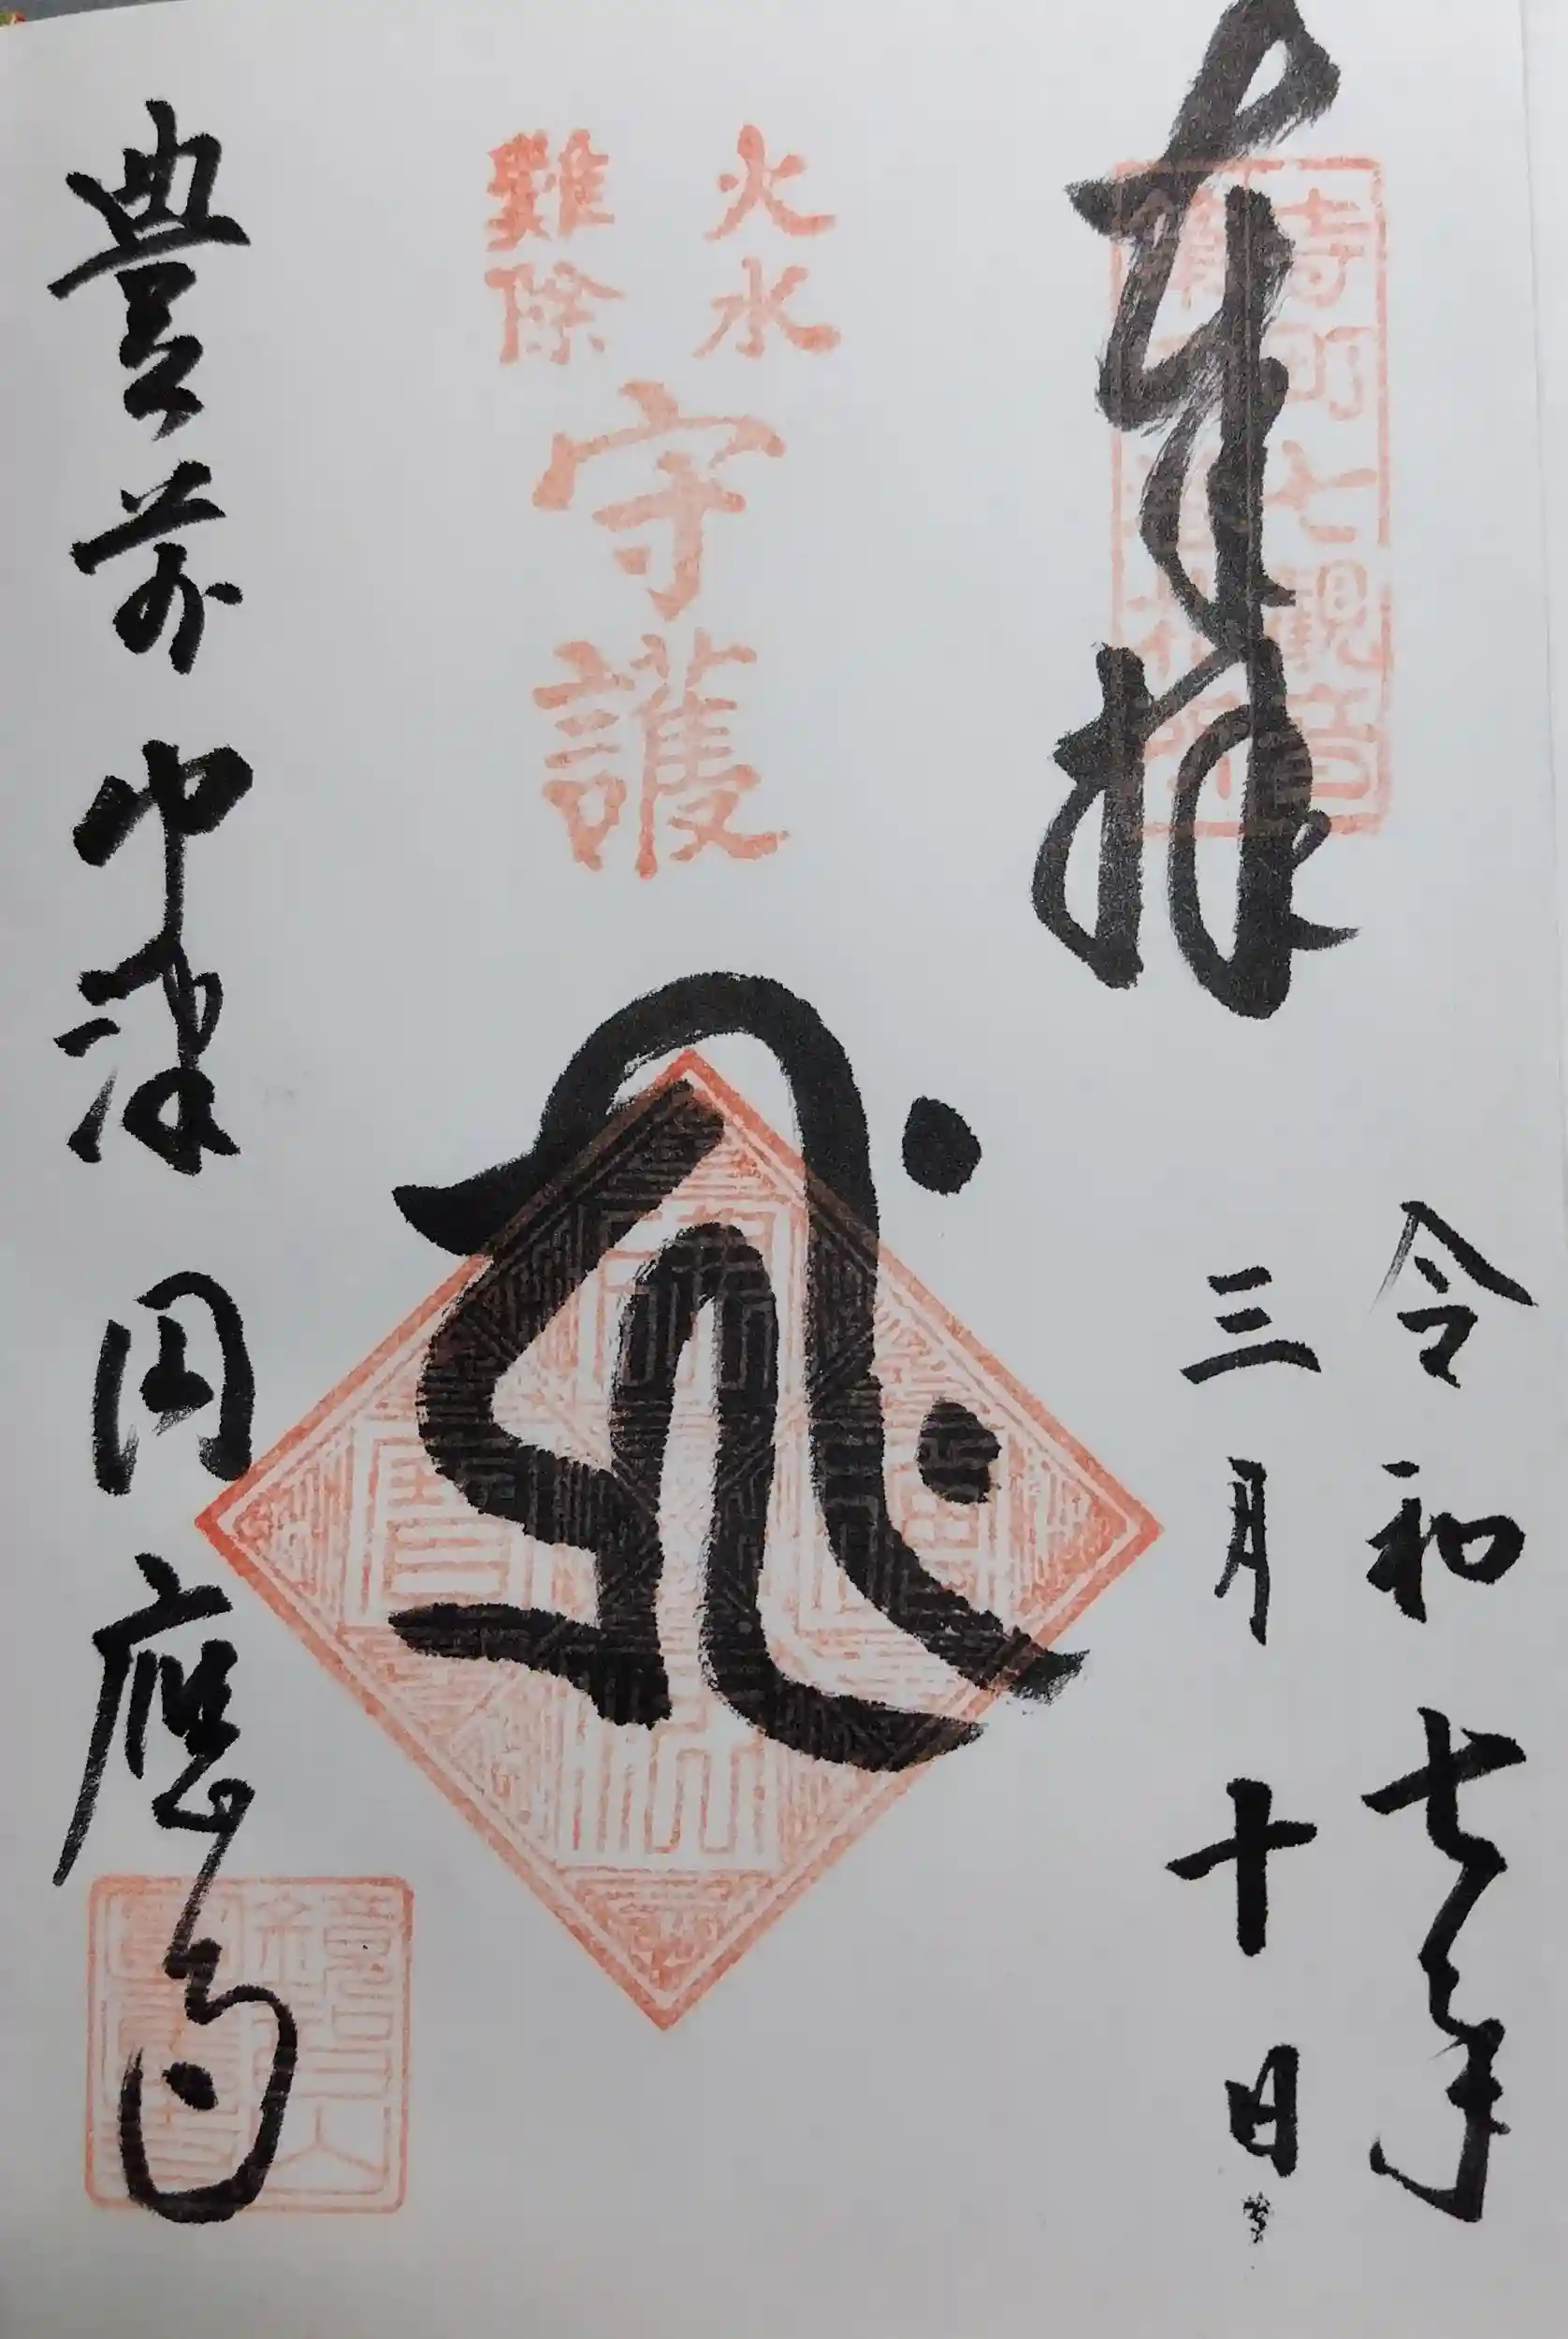 奉拝
寺町七観音
令和七年
三月十日
火水
難除
守護
𑖮𑖿𑖨𑖱𑖾
豊前中津円應寺